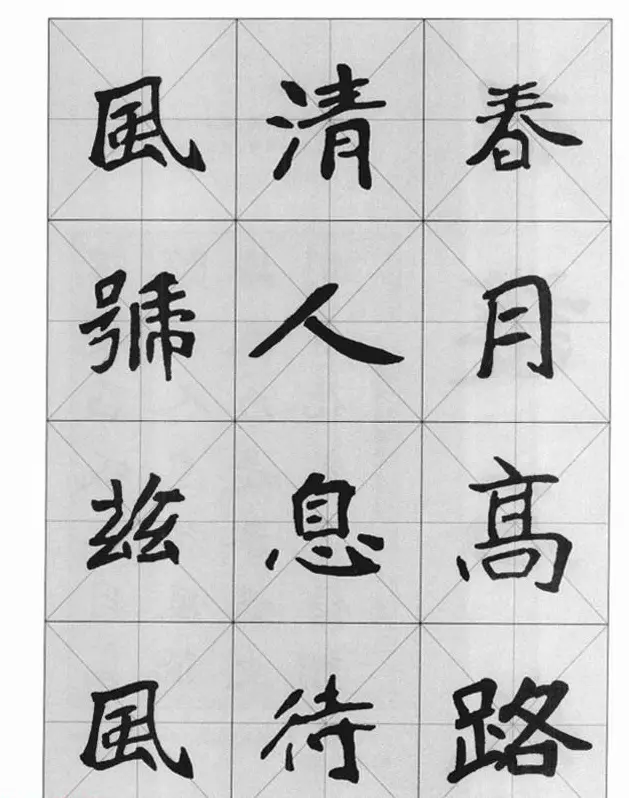 春月高路
清人息待
風號茲風